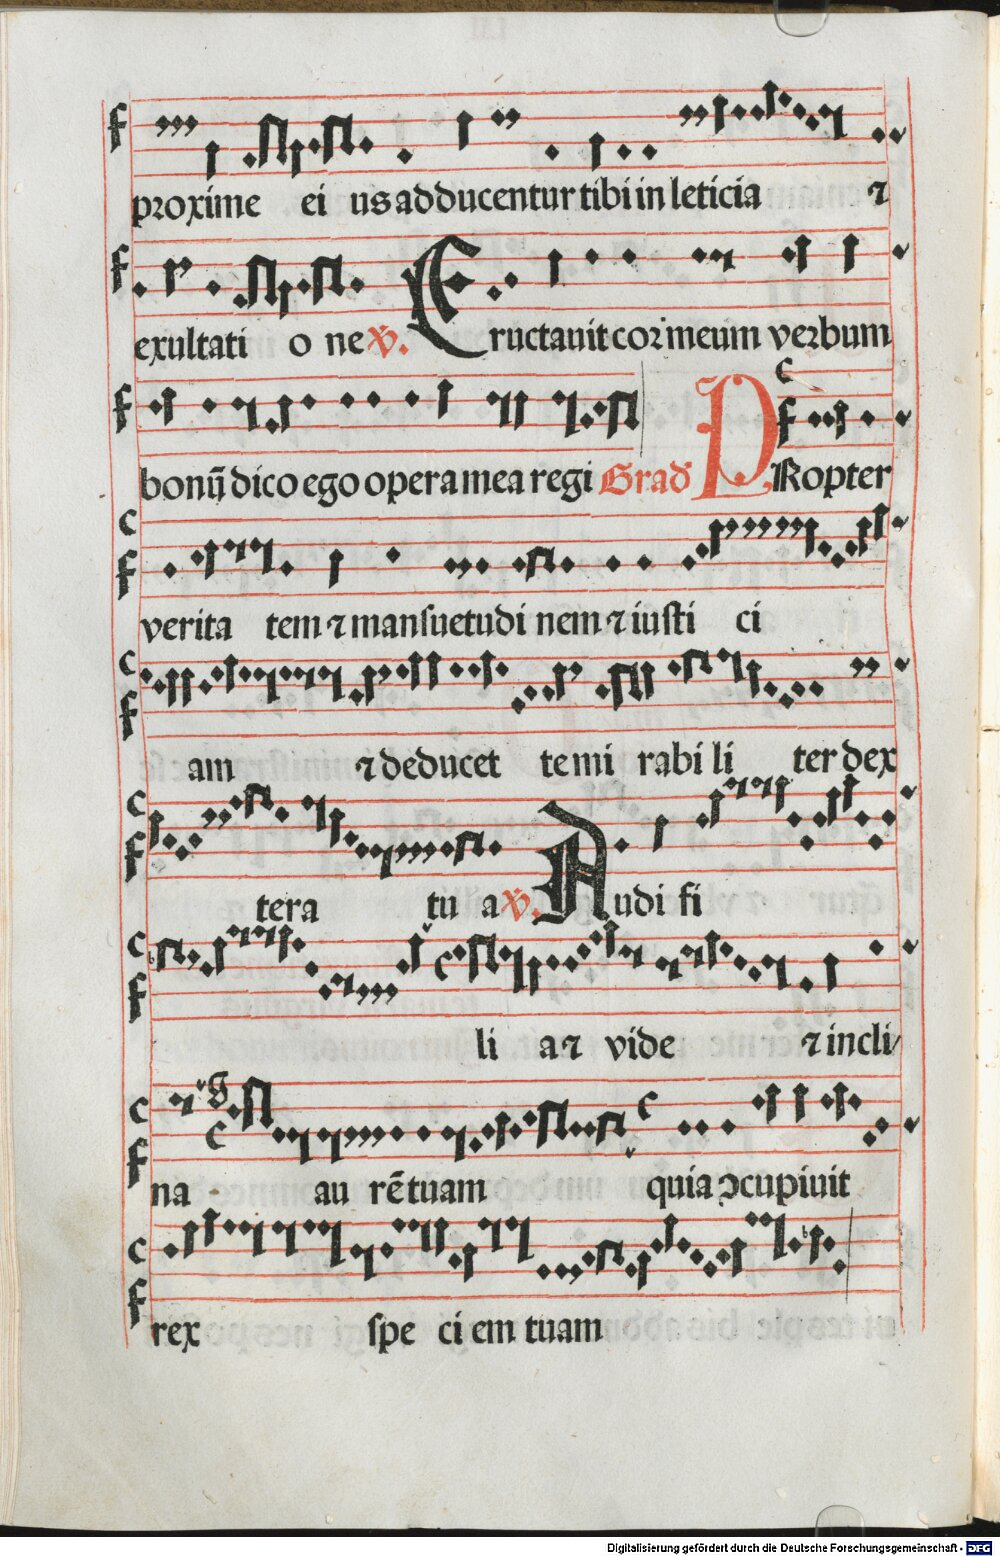 proxime ei us adducentur tibi in leticia ⁊
exultati o ne v̓. Eructauit cor meum verbum
bonū dico ego opera mea regi Grad PRopter
verita tem ⁊ mansuetudi nem ⁊ iusti ci
am ⁊ deducet te mi rabi li ter dex
tera tu a v̓. Audi fi
li a ⁊ vide ⁊ incli
na au rē tuam quia ↄcupiuit
rex spe ci em tuam
Digitalisierung gefördert durch die Deutsche Forschungsgemeinschaft - DFG